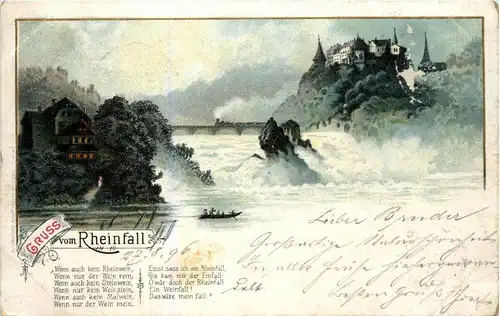 GRUSS
vom Rheinfall
Wenn auch kein Rheinwein,
Wenn nur der Wein rein,
Wenn auch kein Steinwein,
Wenn nur kein Weinstein,
Wenn auch kein Malwein,
Wenn nur der Wein mein.
Einst sass ich am Rheinfall,
Da kam mir der Einfall:
O wär doch der Rheinfall
Ein Weinfall!
Das wäre mein Fall.
96
Lieber Bruder
Großartige
In alter
besten Gruß